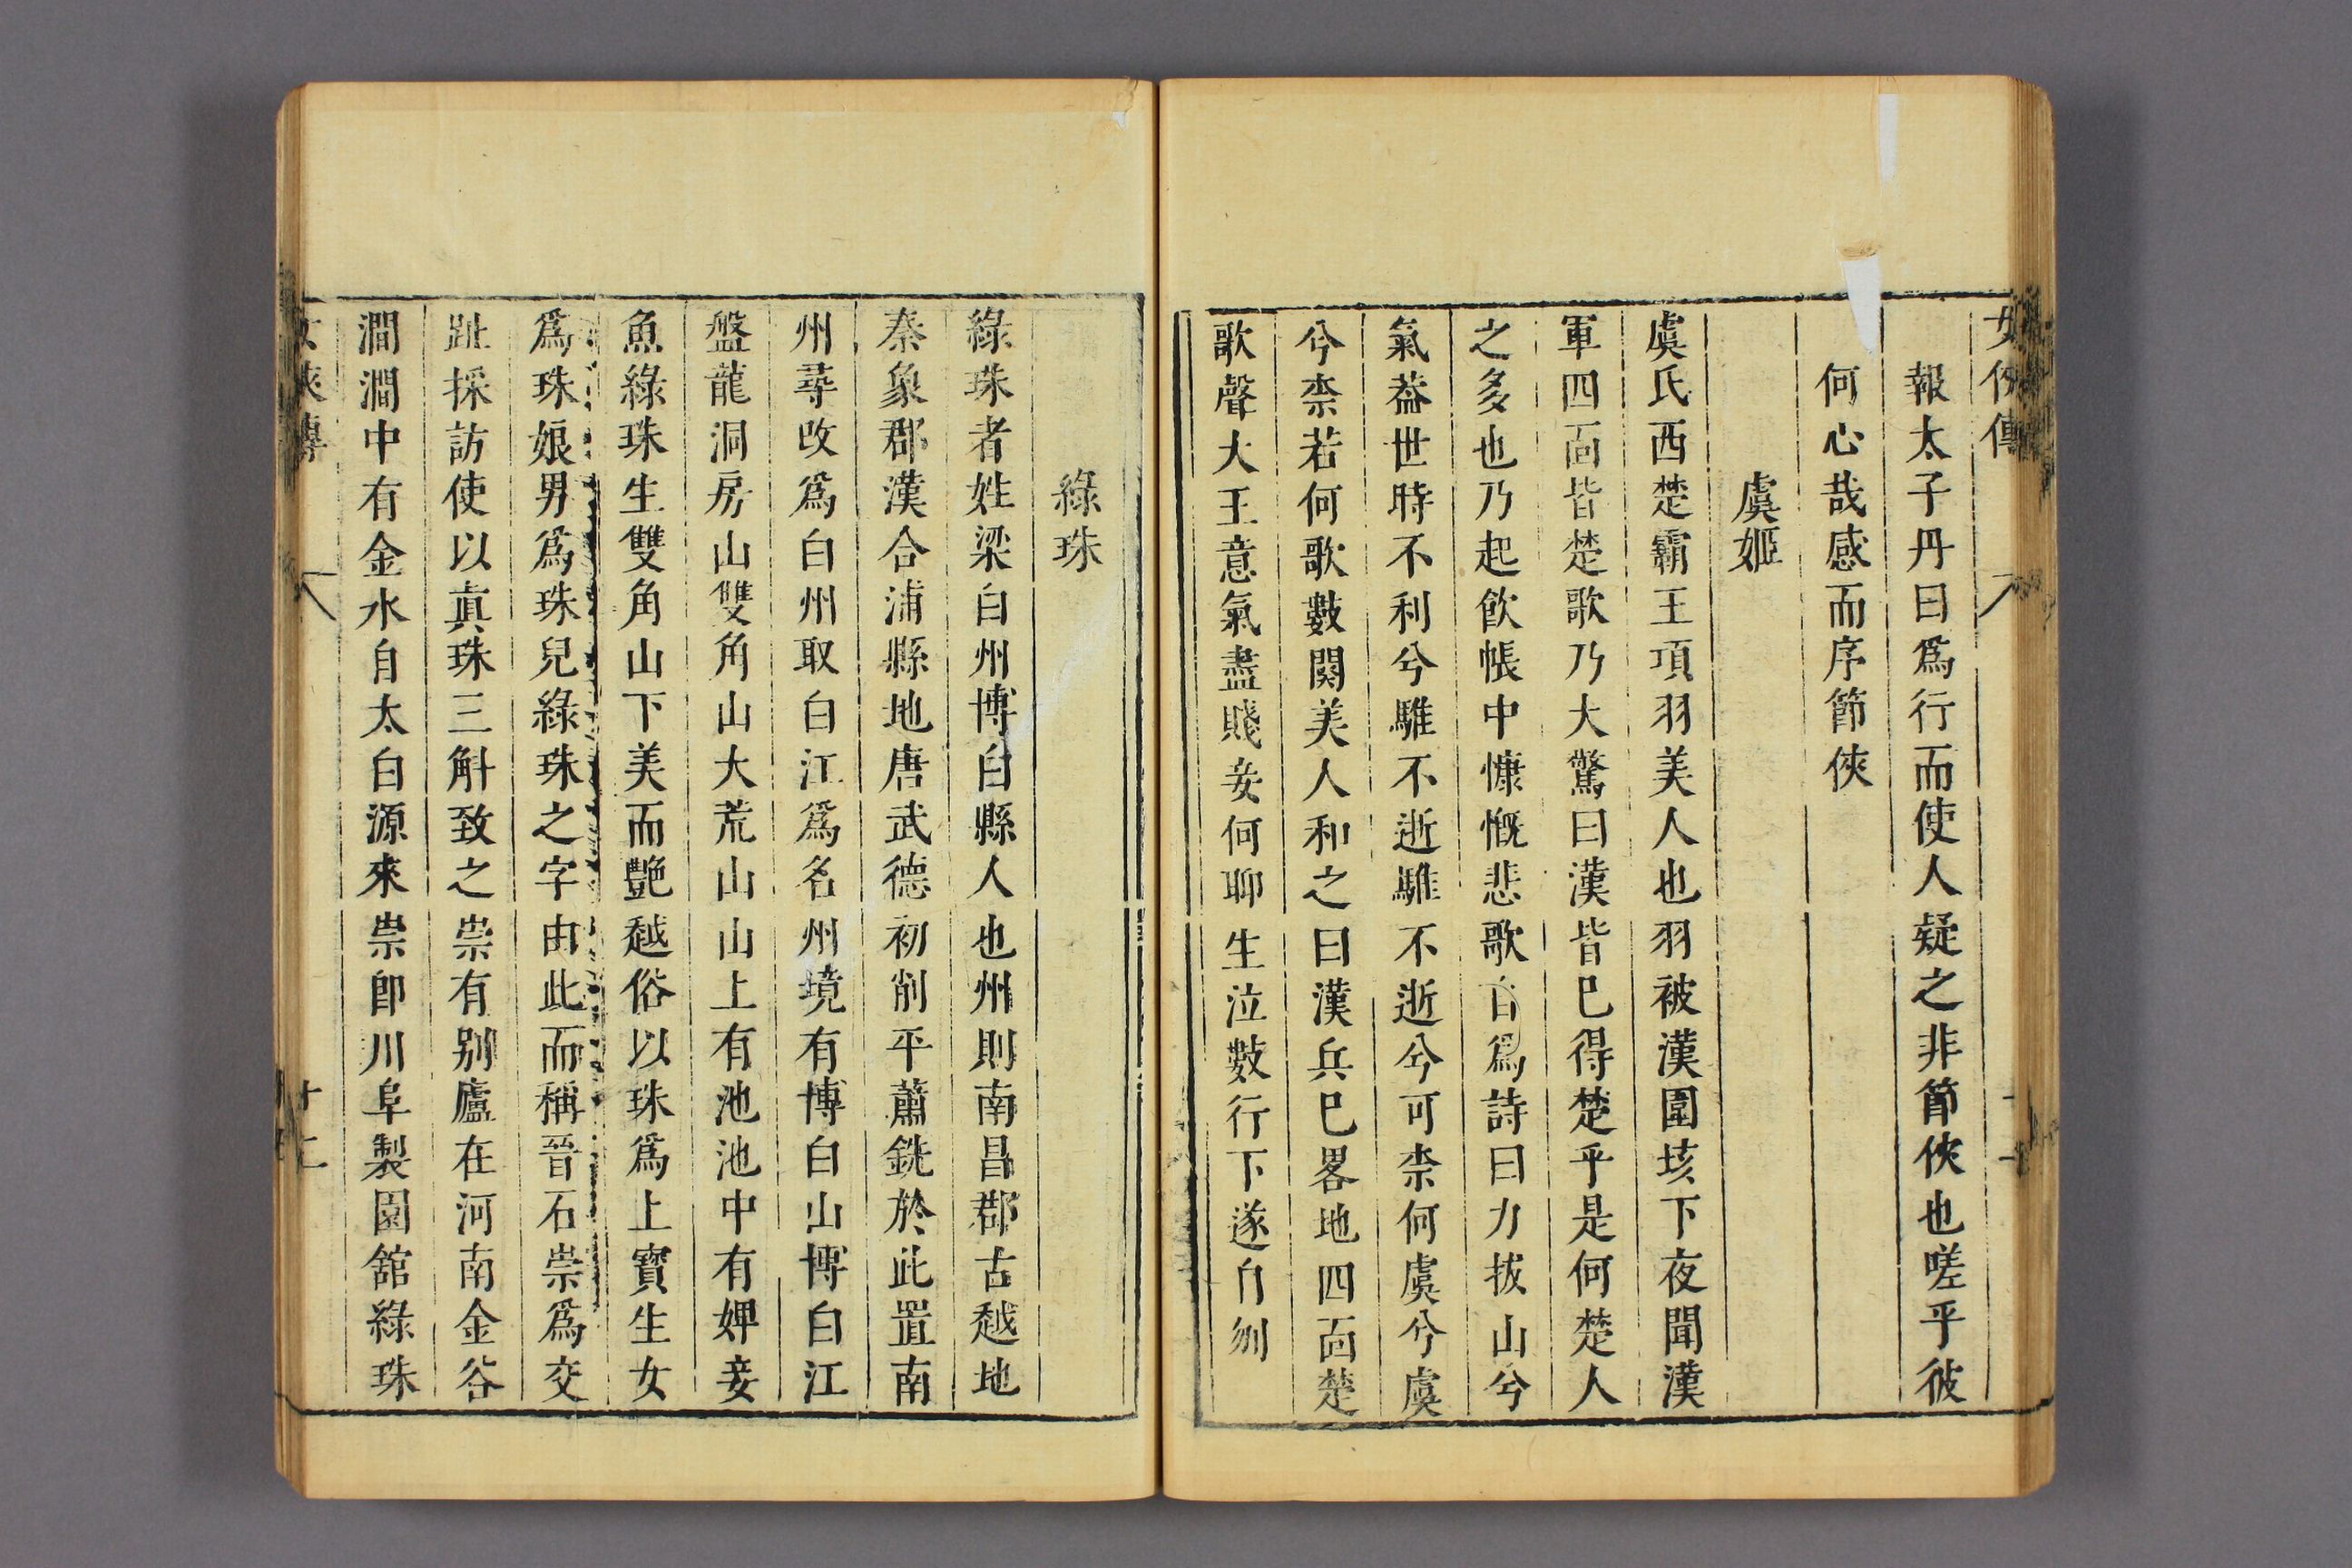 女俠傳
報太子丹曰爲行而使人疑之非節俠也嗟乎彼
何心哉感而序節俠
虞姬
虞氏西楚霸王項羽美人也羽被漢圍垓下夜聞漢
軍四面皆楚歌乃大驚曰漢皆已得楚乎是何楚人
之多也乃起飲帳中慷慨悲歌自爲詩曰力拔山兮
氣葢世時不利兮騅不逝騅不逝兮可柰何虞兮虞
兮柰若何歌數闋美人和之曰漢兵已畧地四面楚
歌聲大王意氣盡賤妾何聊生泣數行下遂自刎
綠珠
綠珠者姓梁白州博白縣人也州則南昌郡古越地
秦象郡漢合浦縣地唐武德初削平蕭銑於此置南
州尋改爲白州取白江爲名州境有博白山博白江
盤龍洞房山雙角山大荒山山上有池池中有婢妾
魚綠珠生雙角山下美而艷越俗以珠爲上寶生女
爲珠娘男爲珠兒綠珠之字由此而稱晉石崇爲交
趾採訪使以眞珠三斛致之崇有别廬在河南金谷
澗澗中有金水自太白源來崇即川阜製園舘綠珠
女俠傳